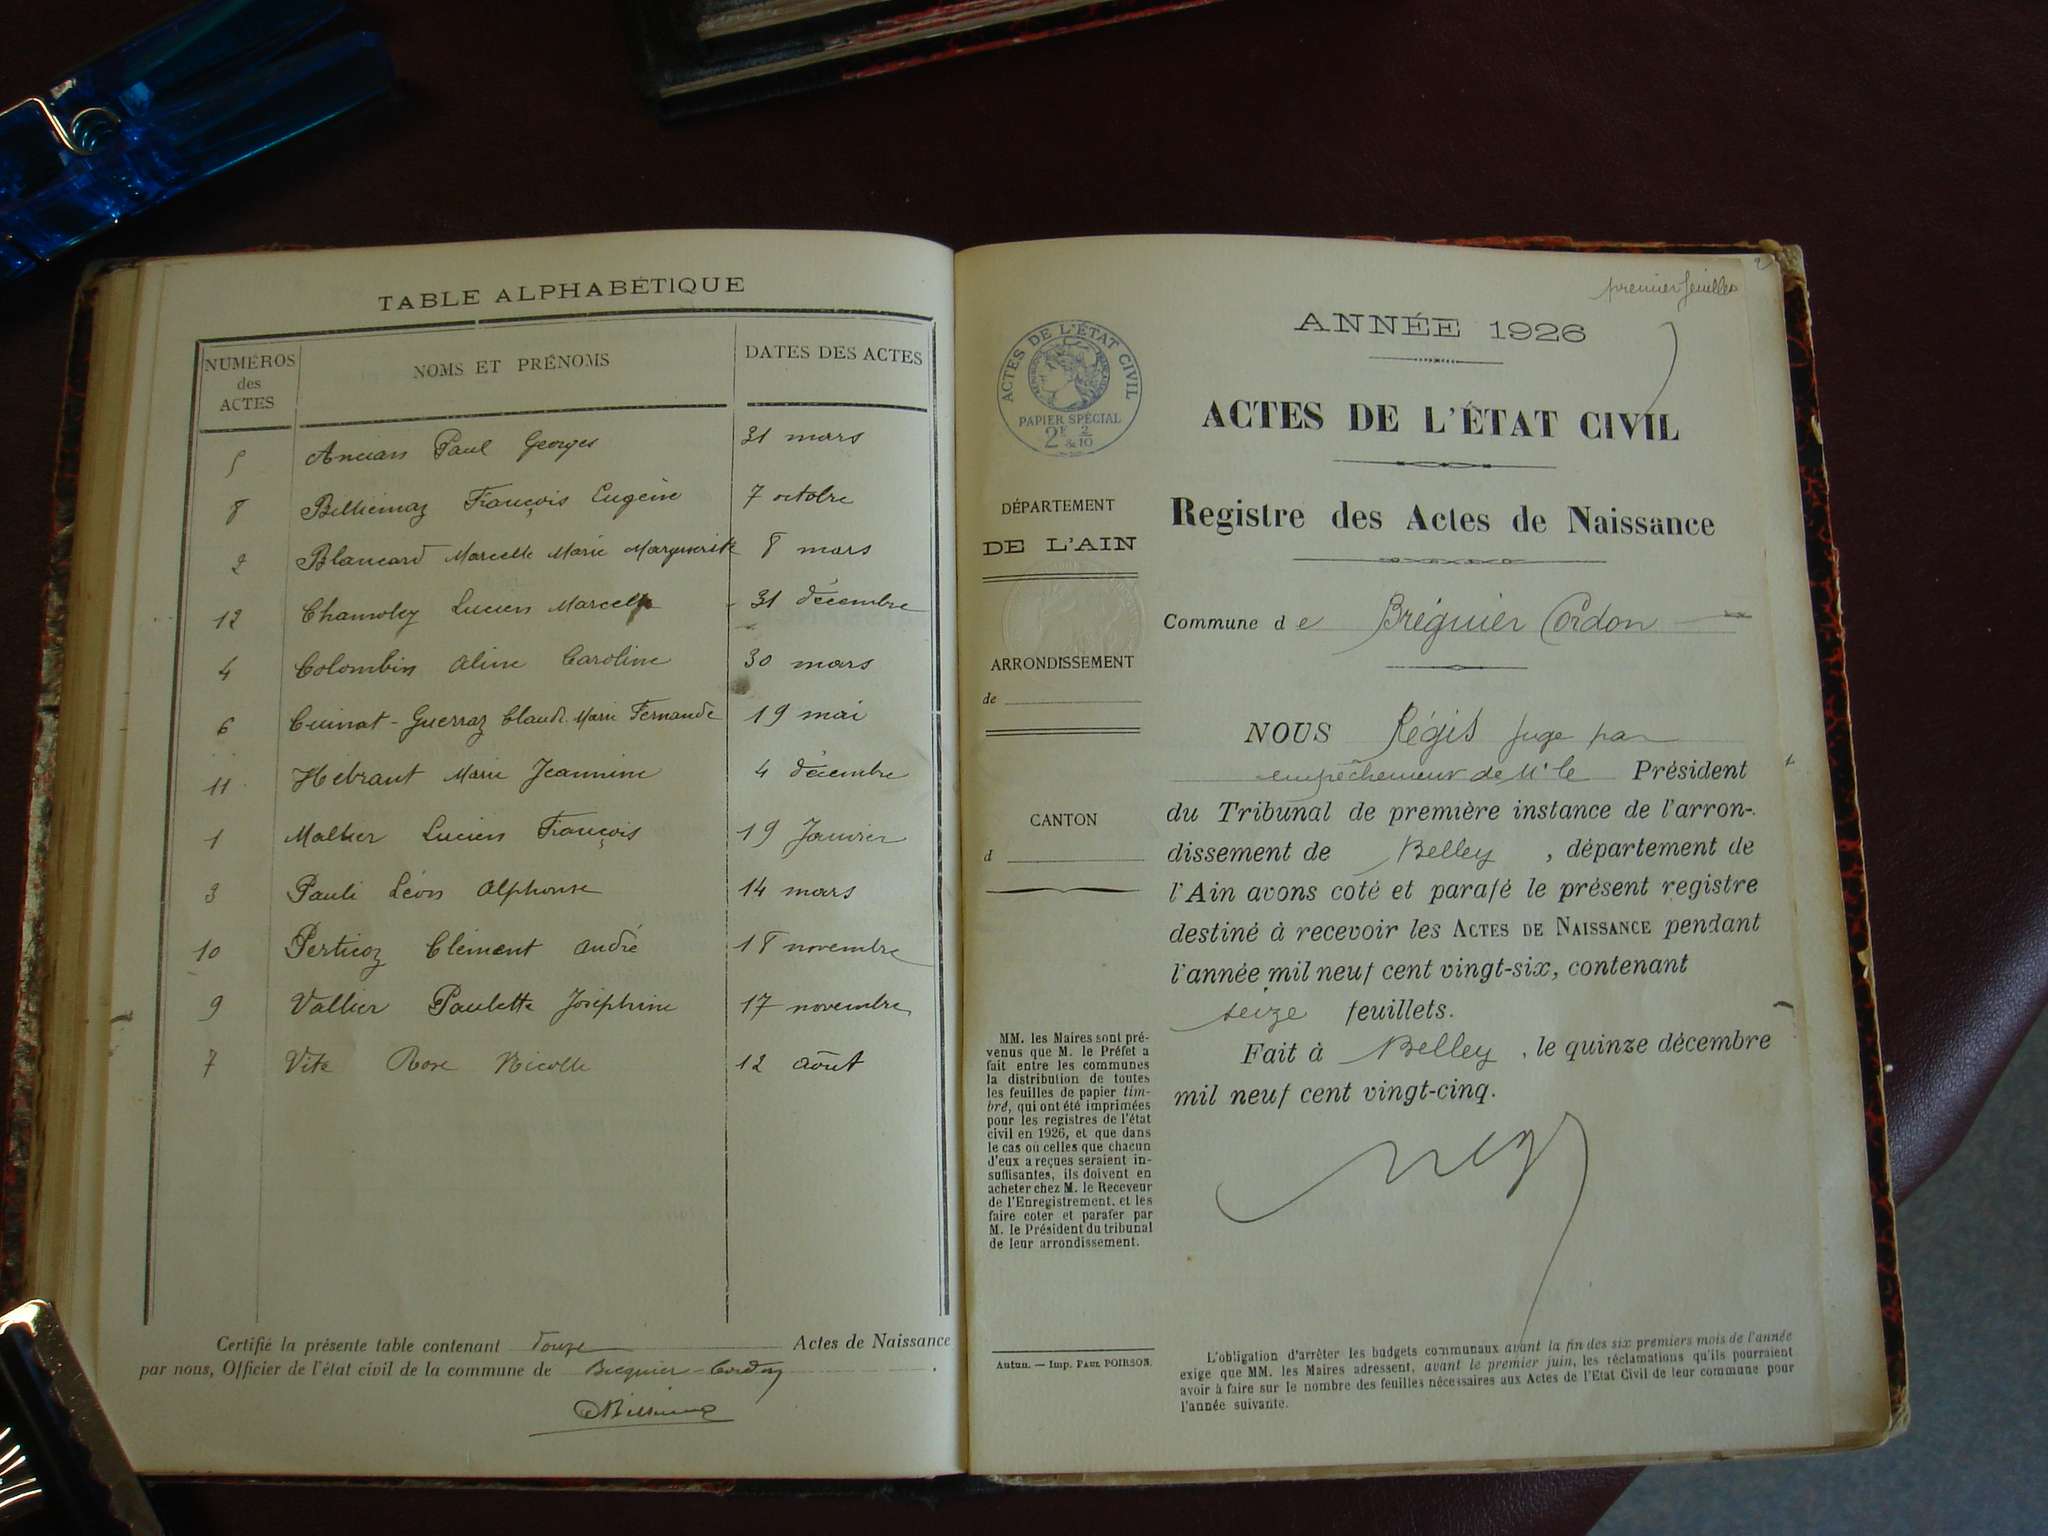 TABLE ALPHABÉTIQUE
NUMÉROS des ACTES NOMS ET PRÉNOMS DATES DES ACTES
5 Ancian Paul Georges 31 mars
8 Billiemaz François Eugène 7 octobre
2 Blancard Marcelle Marie Marguerite 8 mars
12 Lucien Marcel 31 décembre
4 Colombin Aline Caroline 30 mars
6 Cuinat-Guerraz Claude Marie Fernande 19 mai
11 Hébraut Marie Jeannine 4 décembre
1 Lucien François 19 Janvier
3 Pauli Léon Alphonse 14 mars
10 Perticoz Clément André 18 novembre
9 Vallier Paulette Joséphine 17 novembre
7 Vite Rose Nicolle 12 août
Certifié la présente table contenant douze Actes de Naissance
par nous, Officier de l'état civil de la commune de Bregnier-Cordon
premier feuillet
ANNÉE 1926
ACTES DE L'ÉTAT CIVIL
PAPIER SPÉCIAL
2F 2/10
ACTES DE L'ÉTAT CIVIL
Registre des Actes de Naissance
DÉPARTEMENT
DE L'AIN
Commune de Brégnier Cordon
ARRONDISSEMENT
de
CANTON
d
NOUS Régis juge par
empêchement de Mr le Président
du Tribunal de première instance de l'arron-
dissement de Belley, département de
l'Ain avons coté et parafé le présent registre
destiné à recevoir les ACTES DE NAISSANCE pendant
l'année mil neuf cent vingt-six, contenant
seize feuillets.
Fait à Belley, le quinze décembre
mil neuf cent vingt-cinq.
MM. les Maires sont pré-
venus que M. le Préfet a
fait entre les communes
la distribution de toutes
les feuilles de papier tim-
bré, qui ont été imprimées
pour les registres de l'état
civil en 1926, et que dans
le cas où celles que chacun
d'eux a reçues seraient in-
suffisantes, ils doivent en
acheter chez M. le Receveur
de l'Enregistrement, et les
faire coter et parafer par
M. le Président du tribunal
de leur arrondissement.
Autun. — Imp. PAUL POIRSON.
L'obligation d'arrêter les budgets communaux avant la fin des six premiers mois de l'année
exige que MM. les Maires adressent, avant le premier juin, les réclamations qu'ils pourraient
avoir à faire sur le nombre des feuilles nécessaires aux Actes de l'Etat Civil de leur commune pour
l'année suivante.